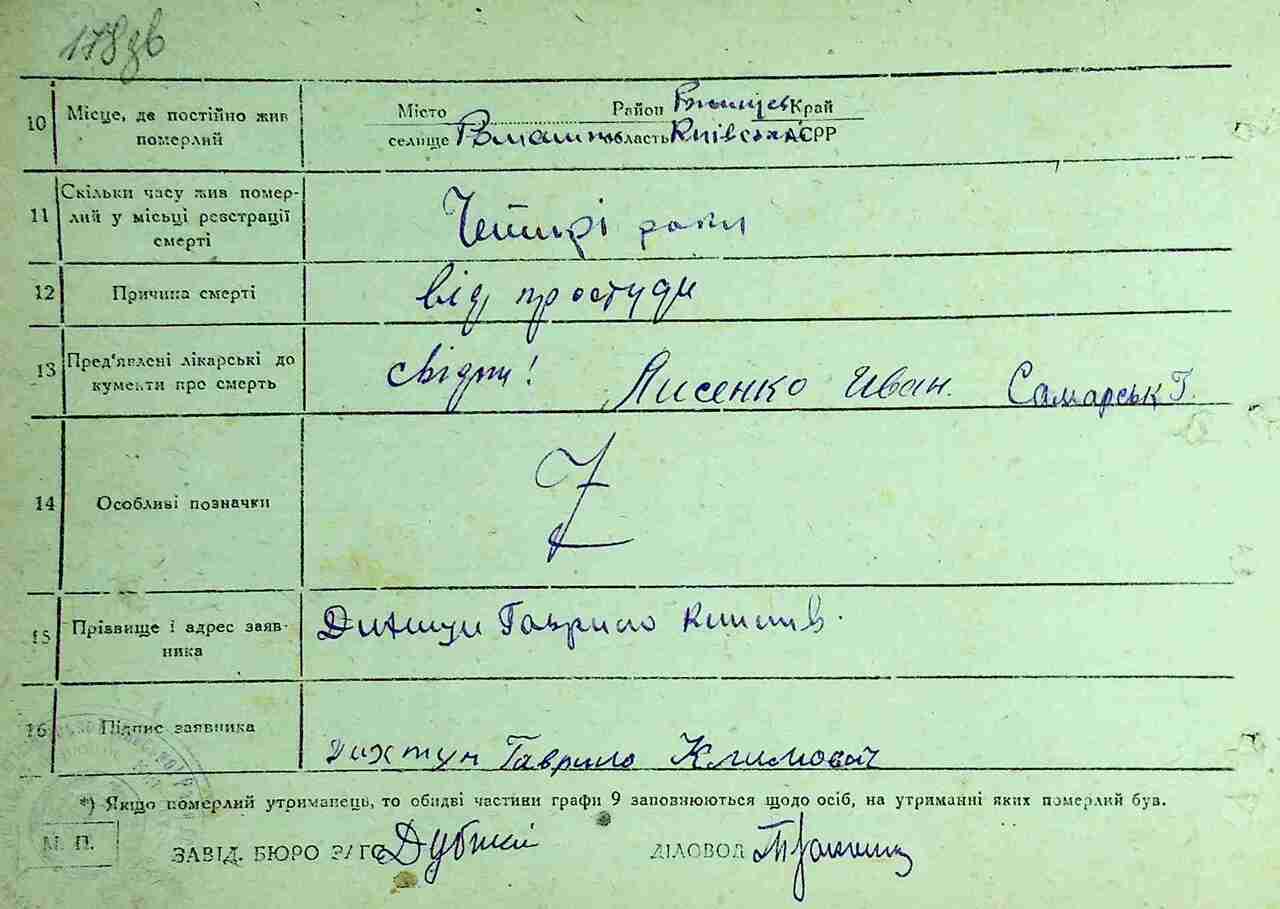 178 зв
10 Місце, де постійно жив Місто Район Край
померлий селище область Київська АСРР
Скільки часу жив помер-
11 лий у місьці реєстрації Чотирі роки
смерті
12 Причина смерті від простуди
13 Пред'явлені лікарські до свідки! Лисенко Иван. Самарськ Г.
кументи про смерть
14 Особливі позначки
15 Прізвище і адрес заяв- Гаврило
ника
16 Підпис заявника Дихтун Гаврило Климович
*) Якщо померлий утриманець, то обидві частини графи 9 заповнюються щодо осіб, на утриманні яких померлий був.
М. П. ЗАВІД. БЮРО ЗАГС ДІЛОВОД